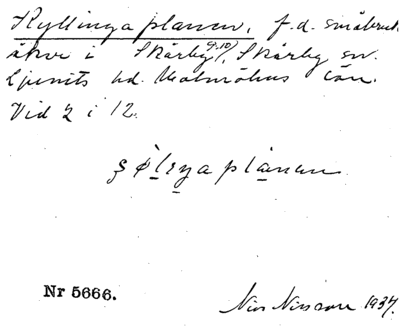 Hyllinga planen, f.d. småbruk
åker i Skårby 9:10/, Skårby sn.
Ljunits hd. Malmöhus län.
Vid 2 i 12.
planen
Nr 5666.
Nils Nilsson 1937.